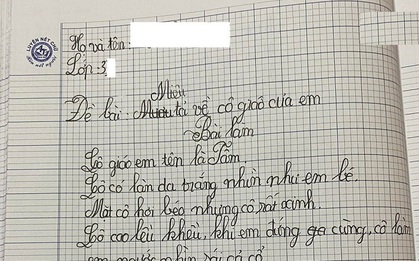 LUYỆN NÉT CHỮ
Họ và tên:
Lớp: 3
Miêu
Đề bài: Mươu tả về cô giáo của em
Bài làm
Cô giáo em tên là Tâm.
Cô có làn da trắng nhìn như em bé.
Mặt cô hơi béo nhưng cô rất xinh.
Cô cao lều khều, khi em đứng ga cùng, cô làm
em người nhìn cổ